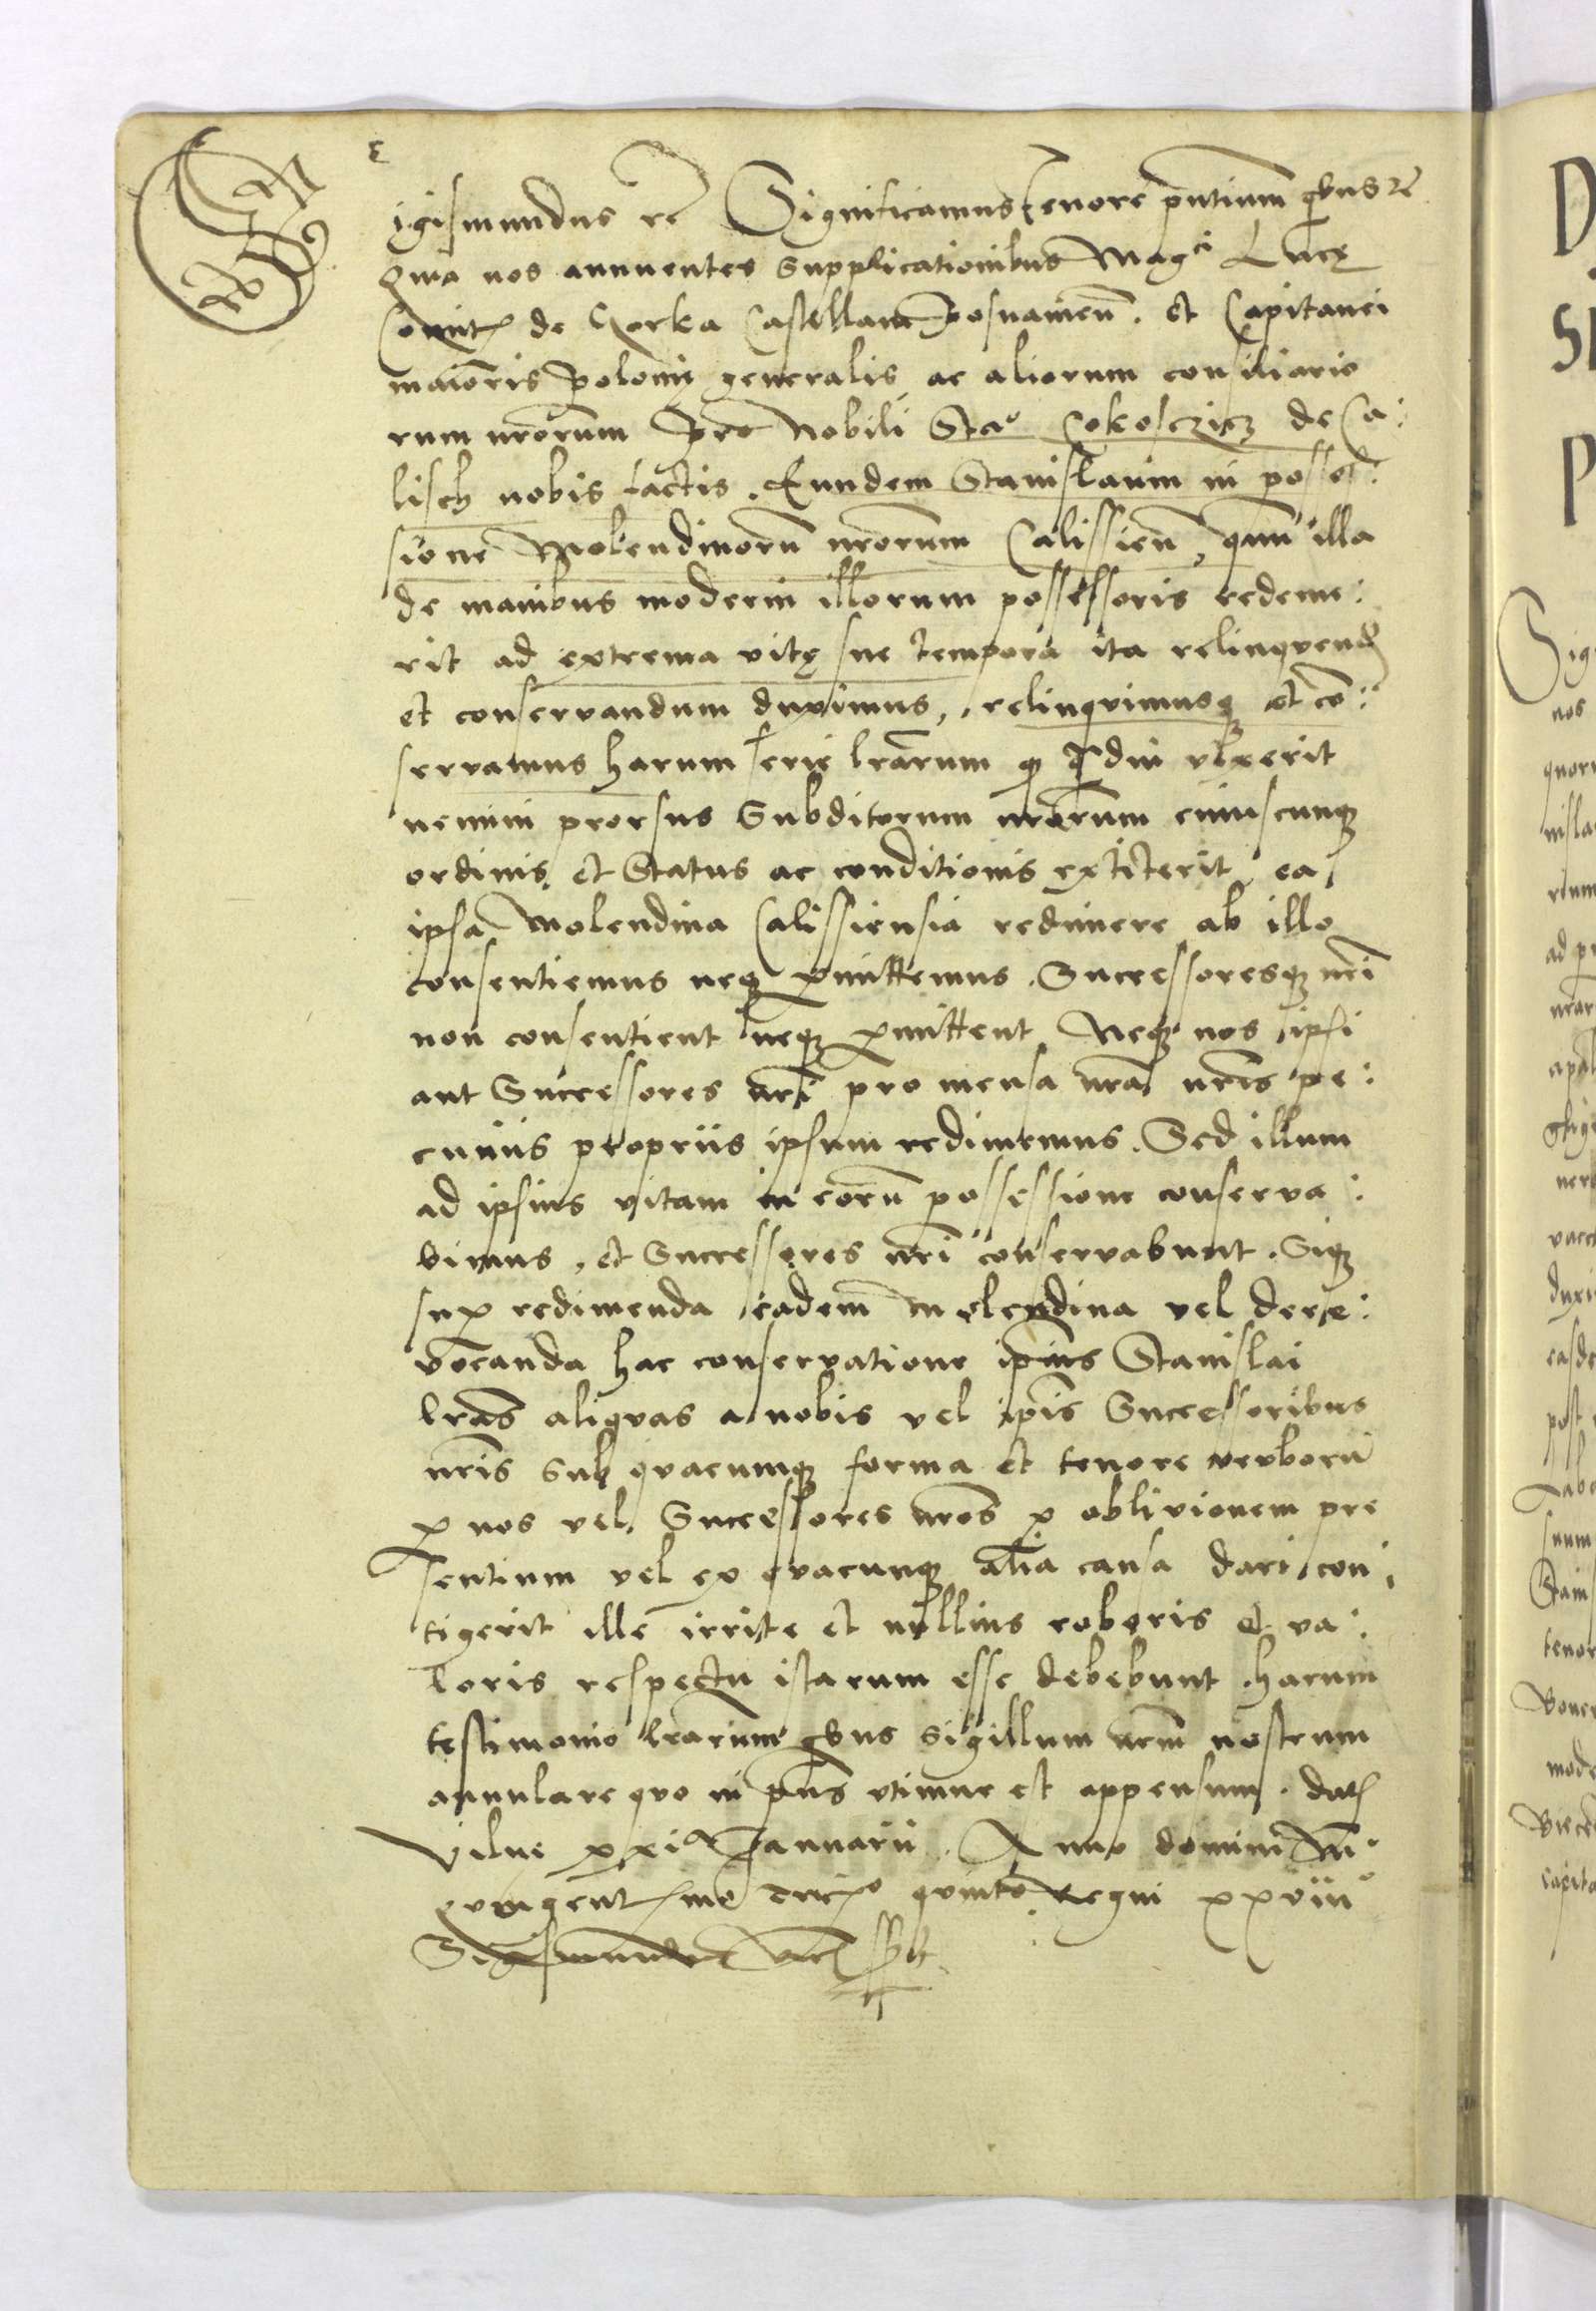 Sigismundus etc Significamus tenore pntium qbus etc
Qma nos annuentes supplicationibus Magci Lucę
Comit de Gorka Castellani Posnanien. et Capitanei
maioris Polonię generalis ac aliorum consiliario
rum nrorum pro Nobili Stao Cokoszicz de Ca:
lisch nobis factis. Eundem Stanislaum in posses:
sione Molendinoru nrorum Calissien, qum illa
de manibus moderni illorum possessoris redeme:
rit ad extrema vitę sue tempora ita relinqvend
et conservandum duximus, relinqvimusq et co:
servamus harum serie lrarum q qdiu vixerit
nemini prorsus Subditorum nrorum cuiuscunq
ordinis et Status ac conditionis extiterit ea
ipsa Molendina Calissiensia redimere ab illo
consentiemus neq pmittemus. Successoresq nri
non consentient neq pmittent Neq nos ipsi
aut Successores nri pro mensa nra nris pe:
cuniis propriis ipsum redimemus. Sed illum
ad ipsius vitam in eoru possessione conserva:
bimus, et Successores nri conservabunt. Siq
sup redimenda eadem molendina vel de re:
vocanda hac conservatione ipius Stanislai
lras aliqvas a nobis vel ipis Successoribus
nris sub qvacumq forma et tenore verboru
p nos vel Successores nros p oblivionem pre
sentium vel ex qvacunq alia causa dari con
tigerit ille irrite et nullius roboris et va:
loris respectu istarum esse debebunt. harum
testimonio lrarum qbus sigillum nrm nostrum
annulare qvo in pns vtimur est appensum. dat
Vilne xxia Januarii. Anno domini M
qvingentmo tricmo qvinto Regni xxviiio
Sigismundus Rex sspt